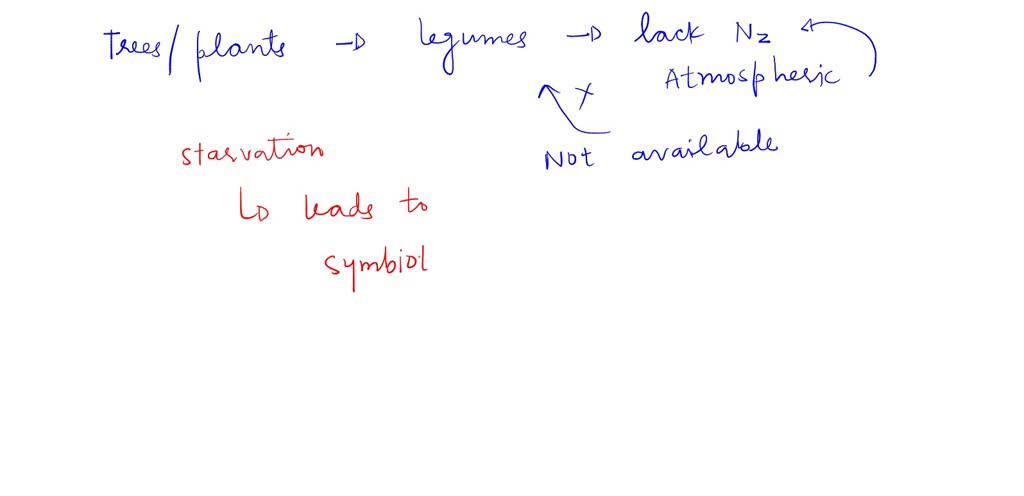 Trees/plants → legumes → lack N2
Atmospheric
x
Not available
starvation
↳ leads to
symbiot